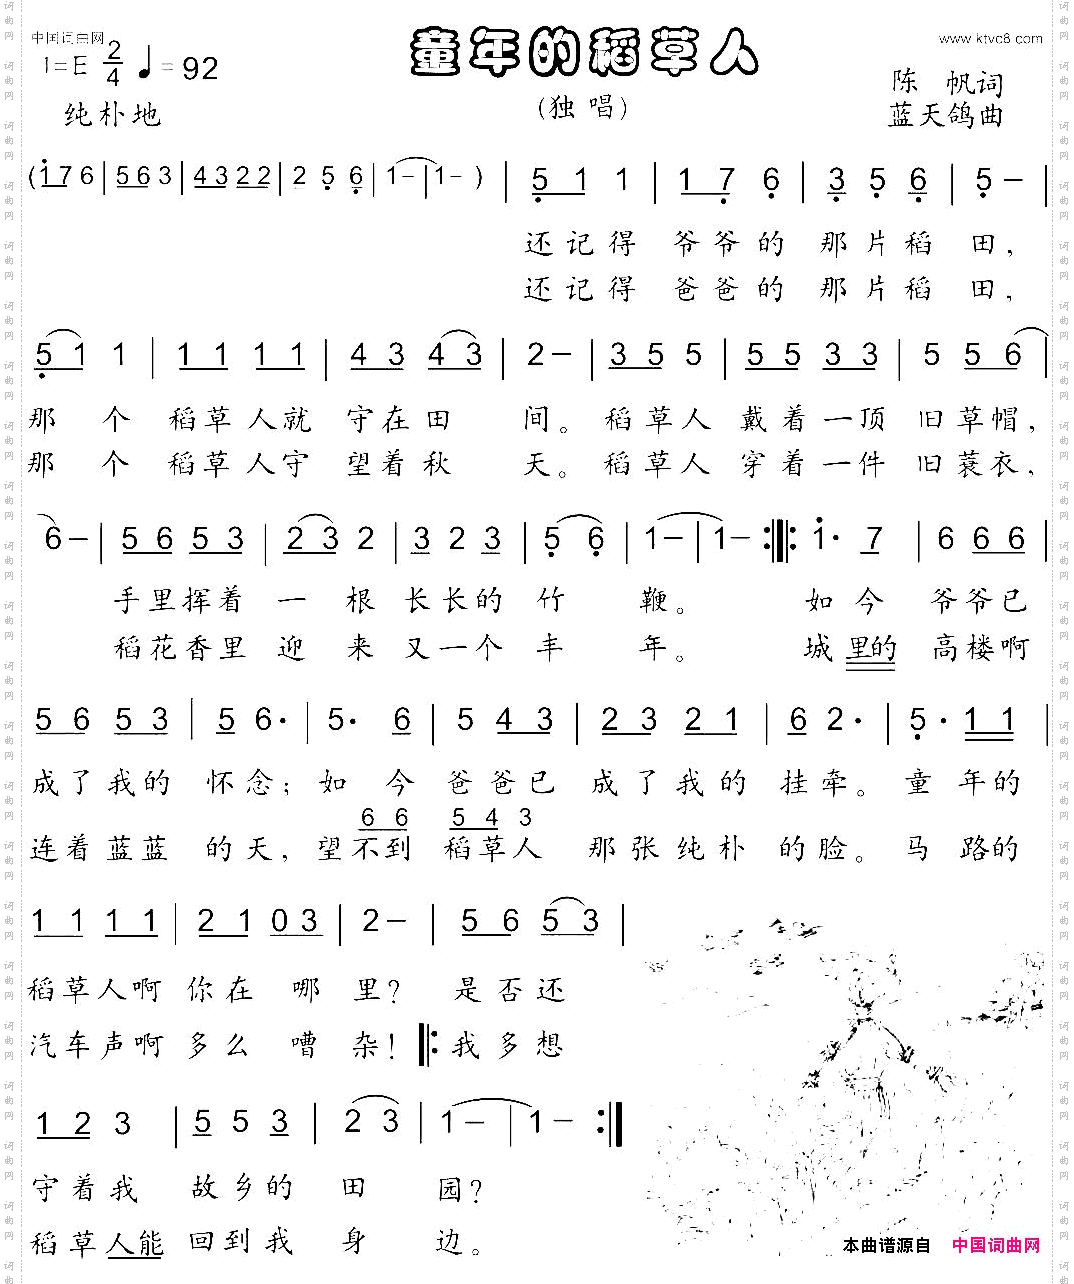 中国词曲网
童年的稻草人
www.ktvc8.com
1=E 2/4 ♩=92
(独唱)
陈 帆词
纯朴地
蓝天鸽曲
(1 7 6 | 5 6 3 | 4 3 2 2 | 2 5 6 | 1 – | 1 – ) | 5 1 1 | 1 7 6 | 3 5 6 | 5 – |
还记得 爷爷的 那片稻 田，
还记得 爸爸的 那片稻 田，
5 1 1 | 1 1 1 1 | 4 3 4 3 | 2 – | 3 5 5 | 5 5 3 3 | 5 5 6 |
那 个 稻草人就 守在田 间。 稻草人 戴着一顶 旧草帽，
那 个 稻草人守 望着秋 天。 稻草人 穿着一件 旧蓑衣，
6 – | 5 6 5 3 | 2 3 2 | 3 2 3 | 5 6 | 1 – | 1 – :‖: 1· 7 | 6 6 6 |
手里挥着 一 根 长长的 竹 鞭。 如 今 爷爷已
稻花香里 迎 来 又一个 丰 年。 城 里的 高楼啊
5 6 5 3 | 5 6· | 5· 6 | 5 4 3 | 2 3 2 1 | 6 2· | 5· 1 1 |
成了我的 怀念； 如 今 爸爸已 成了我的 挂牵。 童 年的
6 6 5 4 3
连着蓝蓝 的天，望不到 稻草人 那张纯朴 的脸。 马 路的
1 1 1 1 | 2 1 0 3 | 2 – | 5 6 5 3 |
稻草人啊 你在 哪 里？ 是否还
汽车声啊 多么 嘈 杂！ ‖: 我多想
1 2 3 | 5 5 3 | 2 3 | 1 – | 1 – :‖
守着我 故乡的 田 园？
稻草人能 回到我 身 边。
本曲谱源自 中国词曲网